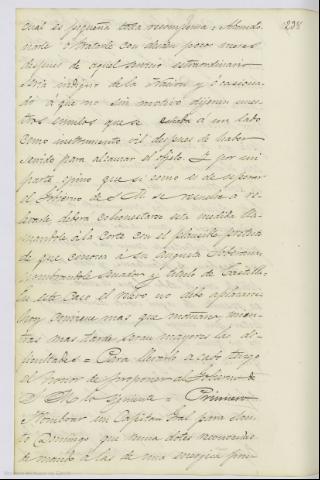 238
cual es pequeña toda recompensa: Abando-
narle ó tratarle con desden poco meses
despues de aquel servicio extraordinario
seria indigno de la Nacion y ocasiona-
do á que no sin motivo dijeran nues-
tros emulos que se echaba á un lado
como instrumento vil despues de haber
servido para alcanzar el objeto. Y por mi
parte opino que si como es de esperar
el Gobierno de S. M. se resuelve á re-
levarle, debera cohonestarse esta medida lla-
mandole á la Corte con el plausible pretexto
de que conozca á su augusta Soberana
nombrandole Senador y titulo de Castilla.
En este caso el relevo no debe aplazarse
hoy conviene mas que mañana, mien-
tras mas tarde seran mayores las di-
ficultades = Para llevarlo á cabo tengo
el honor de proponer al Gobierno de
S. M. lo siguiente = Primero
Nombrar un Capitan Gral para San-
to Domingo que reuna dotes reconocidas
de mando á las de una energica